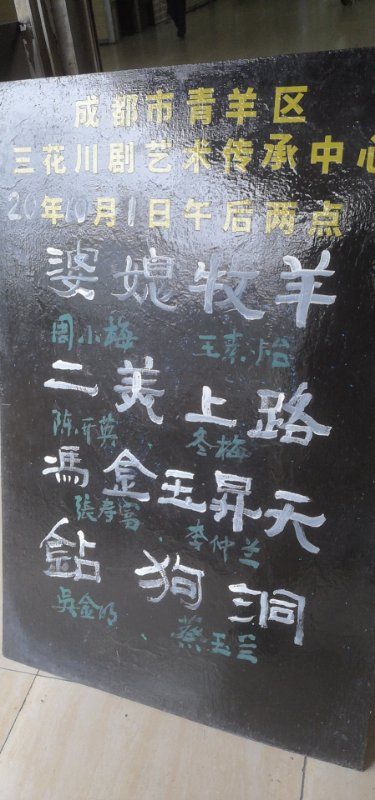 成都市青羊区
三花川剧艺术传承中心
20年10月1日午后两点
婆媳牧羊
周小梅 王素怡
二美上路
陈开英 冬梅
馮金玉昇天
張孝富 李仲兰
鉆狗洞
吳金明 蔡玉兰